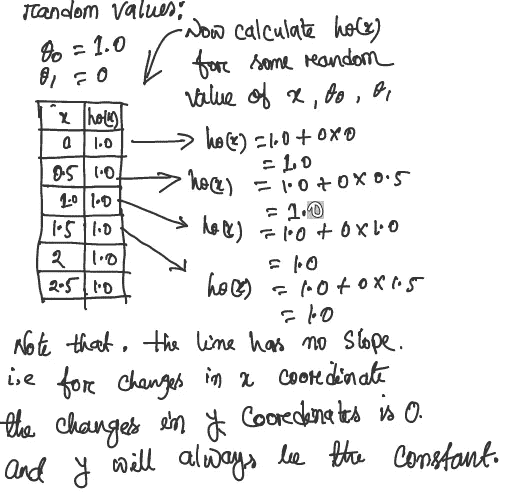 random values:
θ₀ = 1.0
θ₁ = 0
Now calculate hθ(x)
for some random
value of x, θ₀, θ₁
x hθ(x)
0 1.0
0.5 1.0
1.0 1.0
1.5 1.0
2 1.0
2.5 1.0
hθ(x) = 1.0 + 0×0
= 1.0
hθ(x) = 1.0 + 0×0.5
= 1.0
hθ(x) = 1.0 + 0×1.0
= 1.0
hθ(x) = 1.0 + 0×1.5
= 1.0
Note that, the line has no slope.
i.e for changes in x coordinate
the changes in y coordinates is 0.
and y will always be the constant.